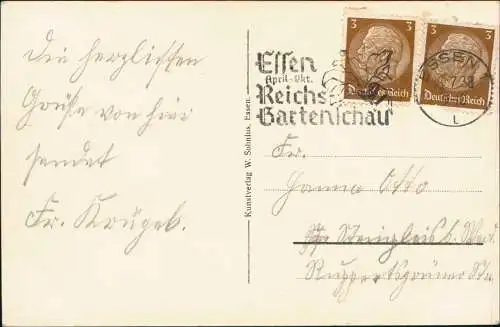 Die herzlichsten
Grüße von hier
sendet
Fr. Krügel.
Kunstverlag W. Sohnius, Essen.
Essen
April-Okt.
Reichs-
Gartenschau
3 3
Deutsches Reich
3 3
Deutsches Reich
ESSEN
L
Fr.
Hanna Otto